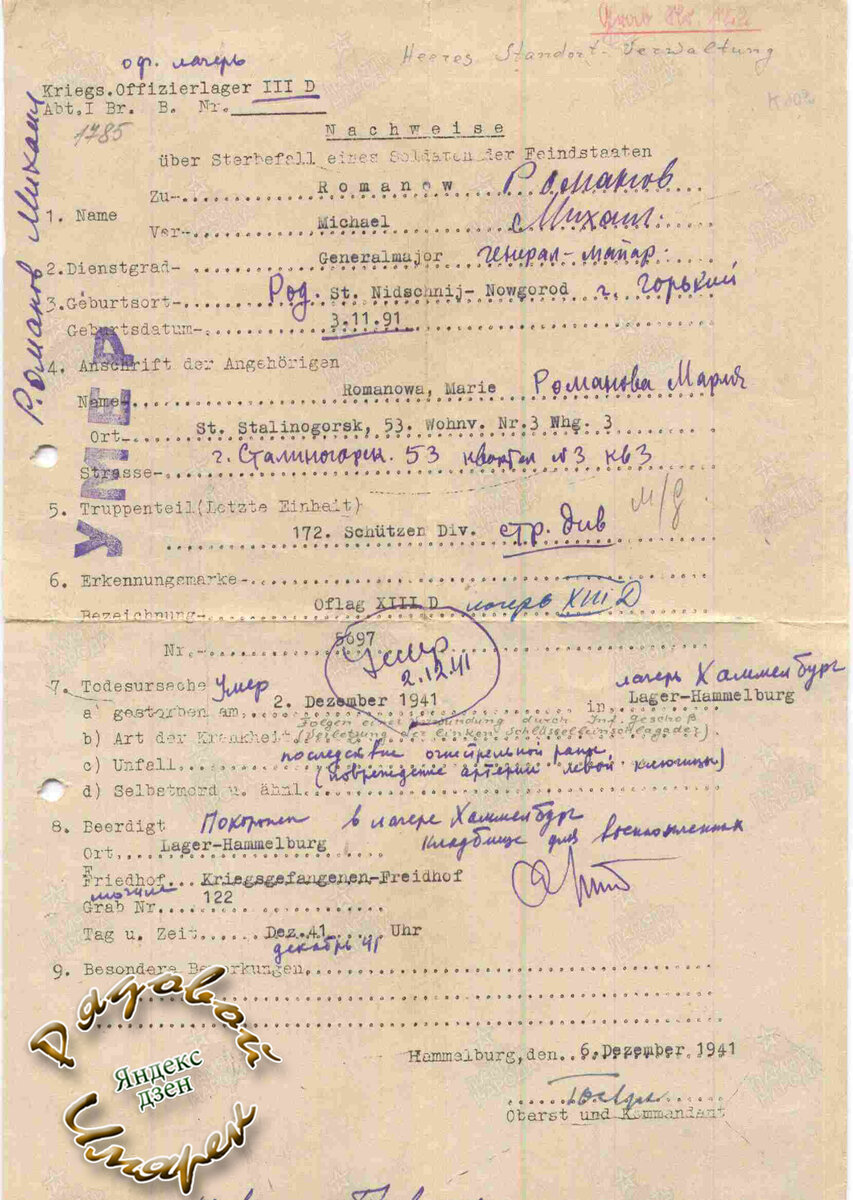 Grab Nr. 122
Heeres Standort-Verwaltung
оф. лагерь
Kriegs.Offizierlager III D
Abt,I Br. B. Nr.
1785
Романов Михаил
УМЕР
Nachweise
über Sterbefall eines Soldaten der Feindstaaten
1. Name Zu- Romanow Романов
Vor- Michael Михаил
2.Dienstgrad- Generalmajor генерал-майор
3.Geburtsort- Род. St. Nidschnij- Nowgorod г. Горький
Geburtsdatum- 3.11.91
4. Anschrift der Angehörigen
Name- Romanowa, Marie Романова Мария
Ort- St. Stalinogorsk, 53. Wohnv. Nr.3 Whg. 3
Strasse- г. Сталиногорск. 53 квартал №3 кв 3
5. Truppenteil(Letzte Einheit)
172. Schützen Div. стр. див
М/д.
6. Erkennungsmarke-
Bezeichnung- Oflag XIII D лагерь XIII D
Nr.- 5697
Умер 2.12.41
7. Todesursache Умер лагерь Хаммельбург
a) gestorben am 2. Dezember 1941 in Lager-Hammelburg
b) Art der Krankheit Folgen einer Verwundung durch Inf. Geschoß
(Verletzung der linken Schlüsselbeinschlagader).
c) Unfall последствие огнестрельной раны
(повреждение артерии левой ключицы)
d) Selbstmord u. ähnl.
8. Beerdigt Похоронен в лагере Хаммельбург
Ort Lager-Hammelburg кладбище для военнопленных
Friedhof Kriegsgefangenen-Freidhof
могила
Grab Nr. 122
Tag u. Zeit Dez.41 Uhr
декабрь 41
9. Besondere Bemerkungen
Hammelburg,den 6.Dezember 1941
Oberst und Kommandant
Рядовой
Яндекс
дзен
Имярек